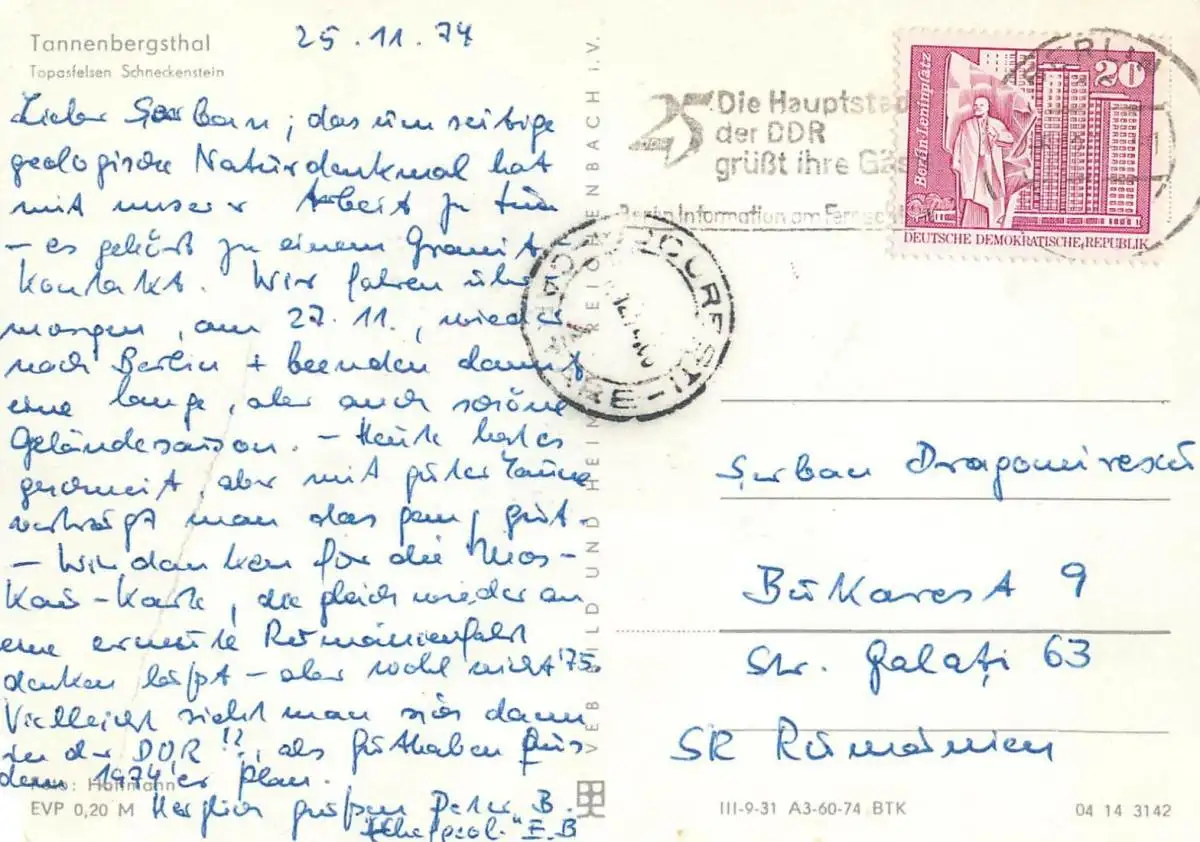 Tannenbergsthal
Topasfelsen Schneckenstein
25.11.74
Lieber Serban, das umseitige
geologische Naturdenkmal hat
mit unserer Arbeit zu tun
– es gehört zu einem Granit
Kontakt. Wir fahren über
morgen, am 27.11., wieder
nach Berlin + beenden damit
eine lange, aber auch schöne
Geländesaison. – Heute hat es
geschneit, aber mit guter Laune
verträgt man das ganz gut.
– Wir danken für die Mos-
kau-Karte, die gleich wieder an
eine erneute Rumänienfahrt
denken läßt – aber wohl nicht '75.
Vielleicht sieht man sich dann
in der DDR!?, als Guthaben aus
dem 1974'er Plan.
Herzlich grüßen Peter B.
"E.B
Foto: Hoffmann
EVP 0,20 M
VEB BILD UND HEIMAT REICHENBACH I.V.
25 Die Hauptstad
der DDR
grüßt ihre Gäs
Berlin Information am Fernseh
BERLIN
20
Berlin-Leninplatz
DEUTSCHE DEMOKRATISCHE REPUBLIK
BUCURESTI
Şerban Dragomirescu
Bukarest 9
Str. Galaţi 63
SR Rumänien
III-9-31 A3-60-74 BTK
04 14 3142